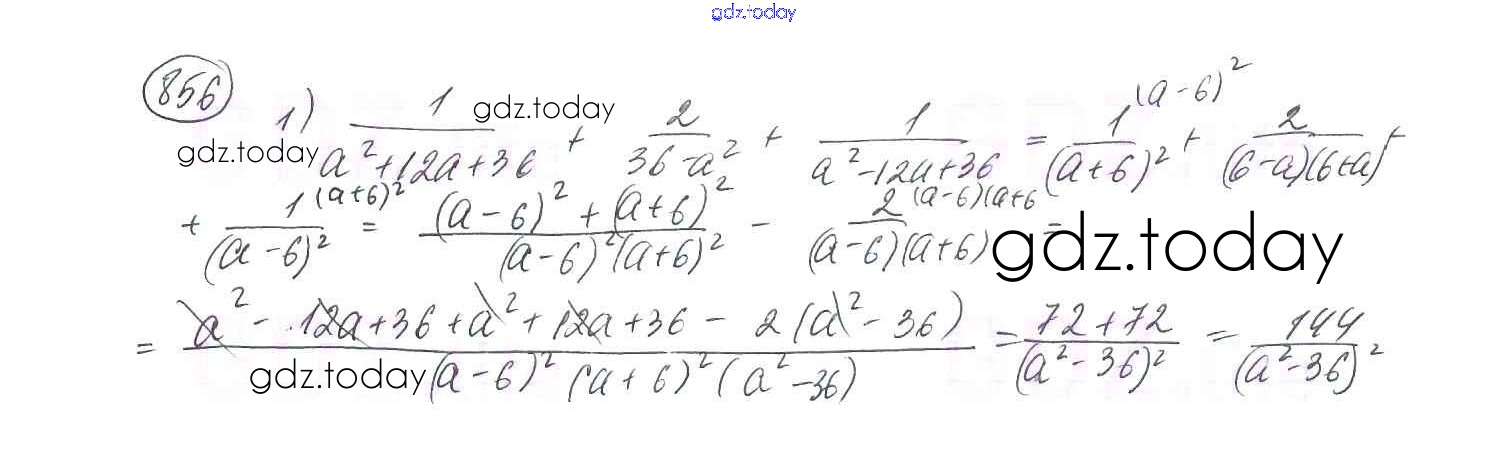 gdz.today
856 1) 1/(a²+12a+36) + 2/(36-a²) + 1/(a²-12a+36) = 1/(a+6)² (a-6)² + 2/((6-a)(6+a)) +
gdz.today
gdz.today
+ 1/(a-6)² (a+6)² = ((a-6)²+(a+6)²)/((a-6)²(a+6)²) - 2/((a-6)(a+6)) (a-6)(a+6 =
gdz.today
= (a²-12a+36+a²+12a+36-2(a²-36))/((a-6)²(a+6)²(a²-36)) = (72+72)/(a²-36)² = 144/(a²-36)²
gdz.today